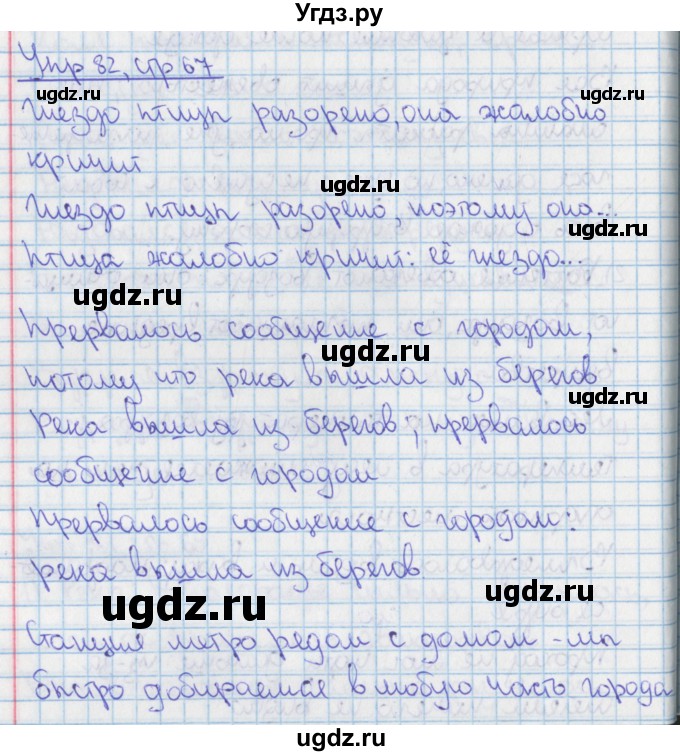 Угдз.ру
Упр 82, стр 67
ugdz.ru ugdz.ru
Гнездо птицы разорено, она жалобно
кричит
ugdz.ru
Гнездо птицы разорено, поэтому она...
ugdz.ru
Птица жалобно кричит: её гнездо...
ugdz.ru
Прервалось сообщение с городом,
ugdz.ru
потому что река вышла из берегов
ugdz.ru
Река вышла из берегов, прервалось
ugdz.ru
сообщение с городом
Прервалось сообщение с городом:
река вышла из берегов
ugdz.ru ugdz.ru
Станция метро рядом с домом - мы
быстро добираемся в любую часть города
ugdz.ru ugdz.ru